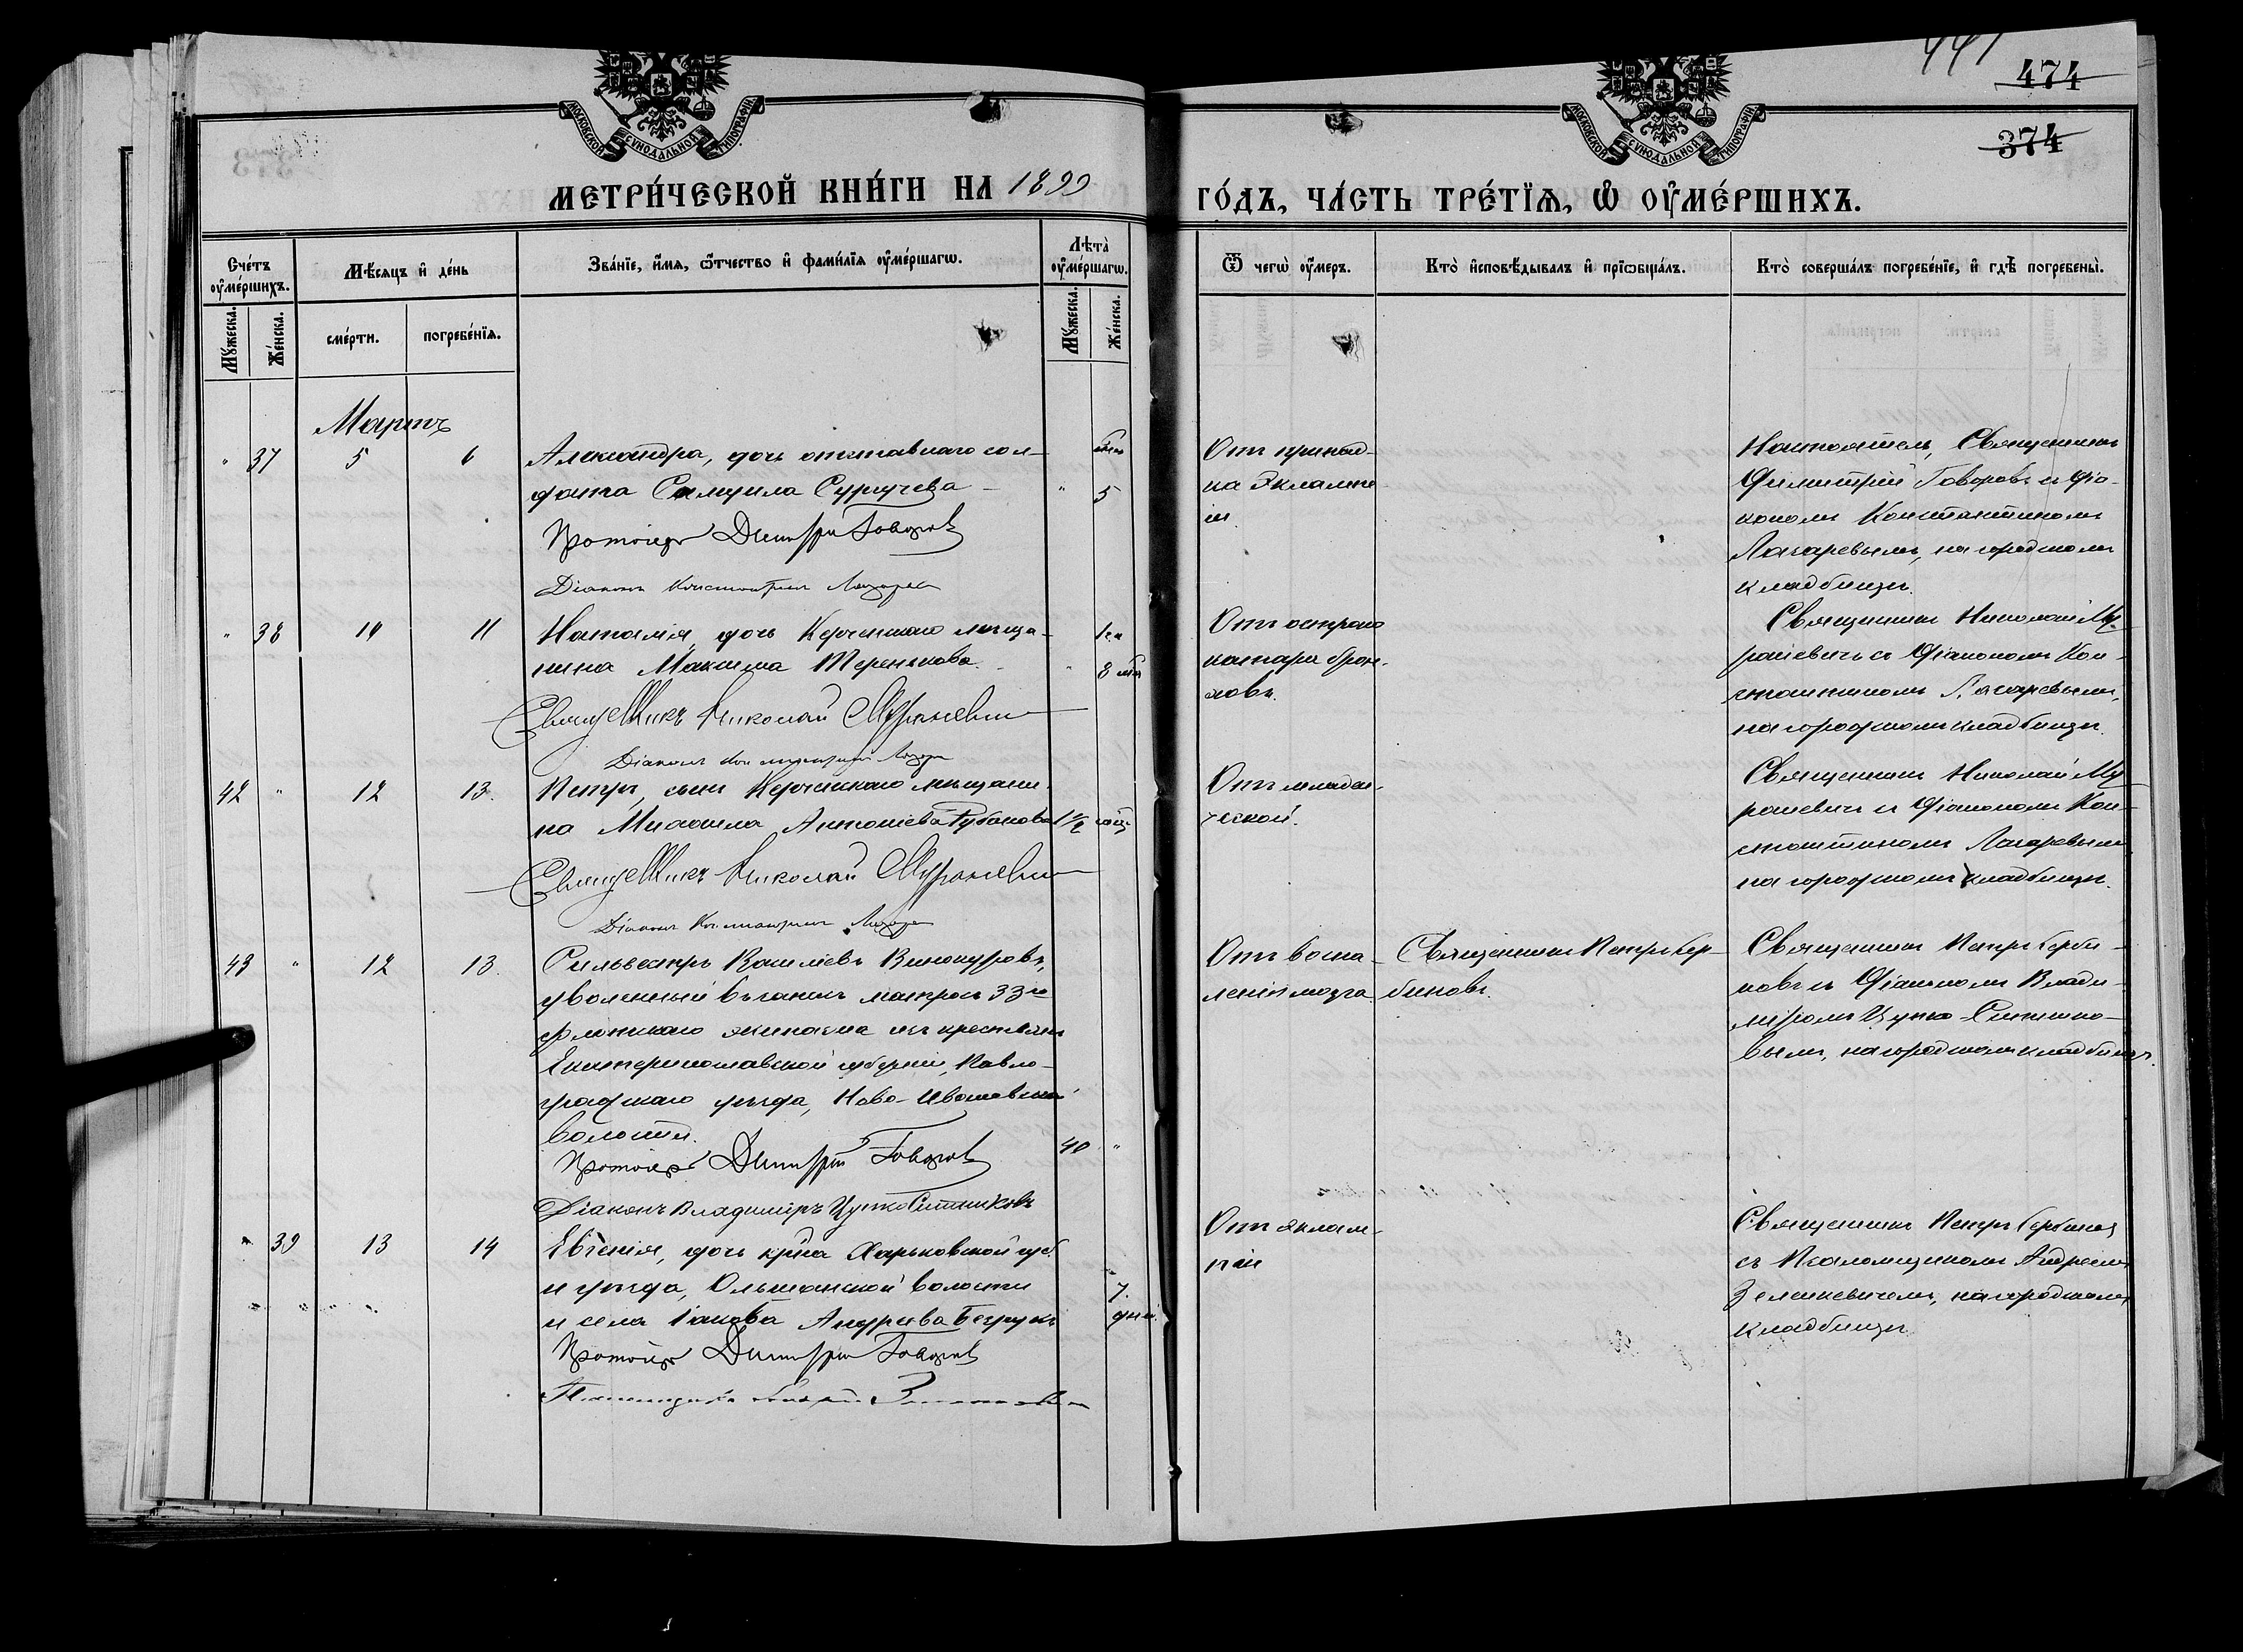 474
374
МОСКОВСКОЙ СѴНОДАЛЬНОЙ ТИПОГРАФІИ
МОСКОВСКОЙ СѴНОДАЛЬНОЙ ТИПОГРАФІИ
МЕТРИ́ЧЕСКОЙ КНИ́ГИ НА 1899
ГО́ДЪ, ЧА́СТЬ ТРЕ́ТЇѦ, Ѡ҆ ОУ҆МЕ́РШИХЪ.
Сче́тъ оу҆ме́ршихъ.
Мѣ́сяцъ и҆ де́нь
Зва́нїе, и҆́мя, ѻ҆́тчество и҆ фами́лїя оу҆ме́ршагѡ.
Лѣ́та оу҆ме́ршагѡ.
Ѿ чегѡ̀ оу҆́меръ.
Кто̀ и҆сповѣ́дывалъ и҆ прїѡбща́лъ.
Кто̀ соверша́лъ погребе́нїе, и҆ гдѣ̀ погребены̀.
Мꙋ́жеска.
Же́нска.
сме́рти.
погребе́нїя.
Мꙋ́жеска.
Же́нска.
Мартъ
" 37 5 6
Александра, дочь отставного сол-
дата Самуила Суручева
" 5
Протоіерей Димитрій Говоровъ
Діаконъ Константинъ Лазаревъ
Отъ припад-
ка Эклампс
іи.
Настоятель, Священникъ
Димитрій Говоровъ съ Діа-
кономъ Константиномъ
Лазаревымъ, на городскомъ
кладбищѣ.
" 38 10 11
Наталія, дочь Керченскаго мѣща-
нина Максима Теренькова.
" 8 мѣс
Священникъ Николай Мураневичъ
Діаконъ Константинъ Лазаревъ
Отъ остраго
катара брон-
ховъ.
Священникъ Николай Му-
раневичъ съ Діакономъ Кон-
стантиномъ Лазаревымъ,
на городскомъ кладбищѣ.
42 " 12 13.
Петръ, сынъ Керченскаго мѣщани-
на Михаила Антоніева Рубанова 1 ½
Священникъ Николай Мураневичъ
Діаконъ Константинъ Лазаревъ
Отъ младен-
ческой.
Священникъ Николай Му
раневичъ съ Діакономъ Кон-
стантиномъ Лазаревымъ
на городскомъ кладбищѣ.
43 " 12 13.
Сильвестръ Василіевъ Винокуровъ,
уволенный въ запасъ матросъ 33го
флотскаго экипажа изъ крестьянъ
Екатеринославской губерніи, Павло-
градскаго уѣзда,
волости.
40 "
Протоіерей Димитрій Говоровъ
Діаконъ Владиміръ Цупко-Ситниковъ
Отъ воспа-
ленія мозга
Священникъ Петръ Сер-
биновъ.
Священникъ Петръ Серби-
новъ съ Діакономъ Влади-
міромъ Цупко-Ситнико-
вымъ, на городскомъ кладбищѣ.
" 39 13 14
Евгенія, дочь кр-на Харьковской губ.
и уѣзда, Ольшанской волости
и села Іакова Андреева
7.
дней.
Протоіерей Димитрій Говоровъ
Отъ эклам-
псіи
Священникъ Петръ Сербиновъ
съ Псаломщикомъ Андреемъ
Зеленкевичемъ, на городскомъ
кладбищѣ